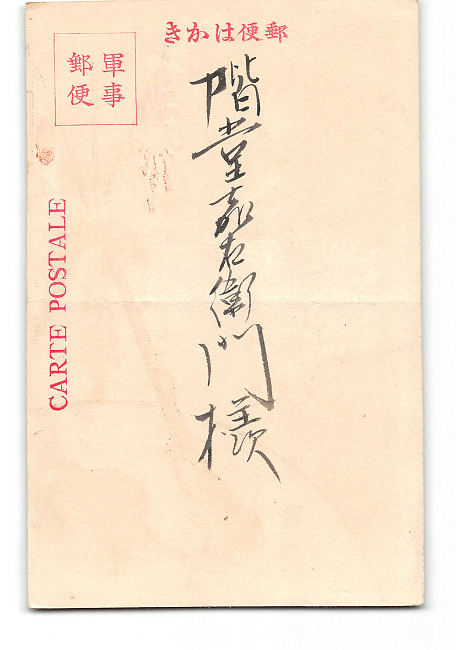 郵便はかき
軍事
郵便
階堂嘉右衛門様
CARTE POSTALE